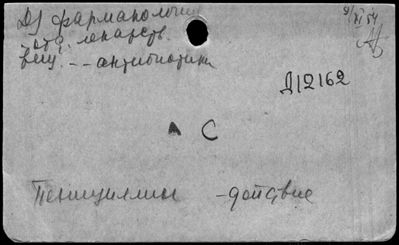 Дз фармакология
отд. лекарств.
вещ. -- антибиотики
9/XI 54
Д12162
А С
Пенициллин -действие